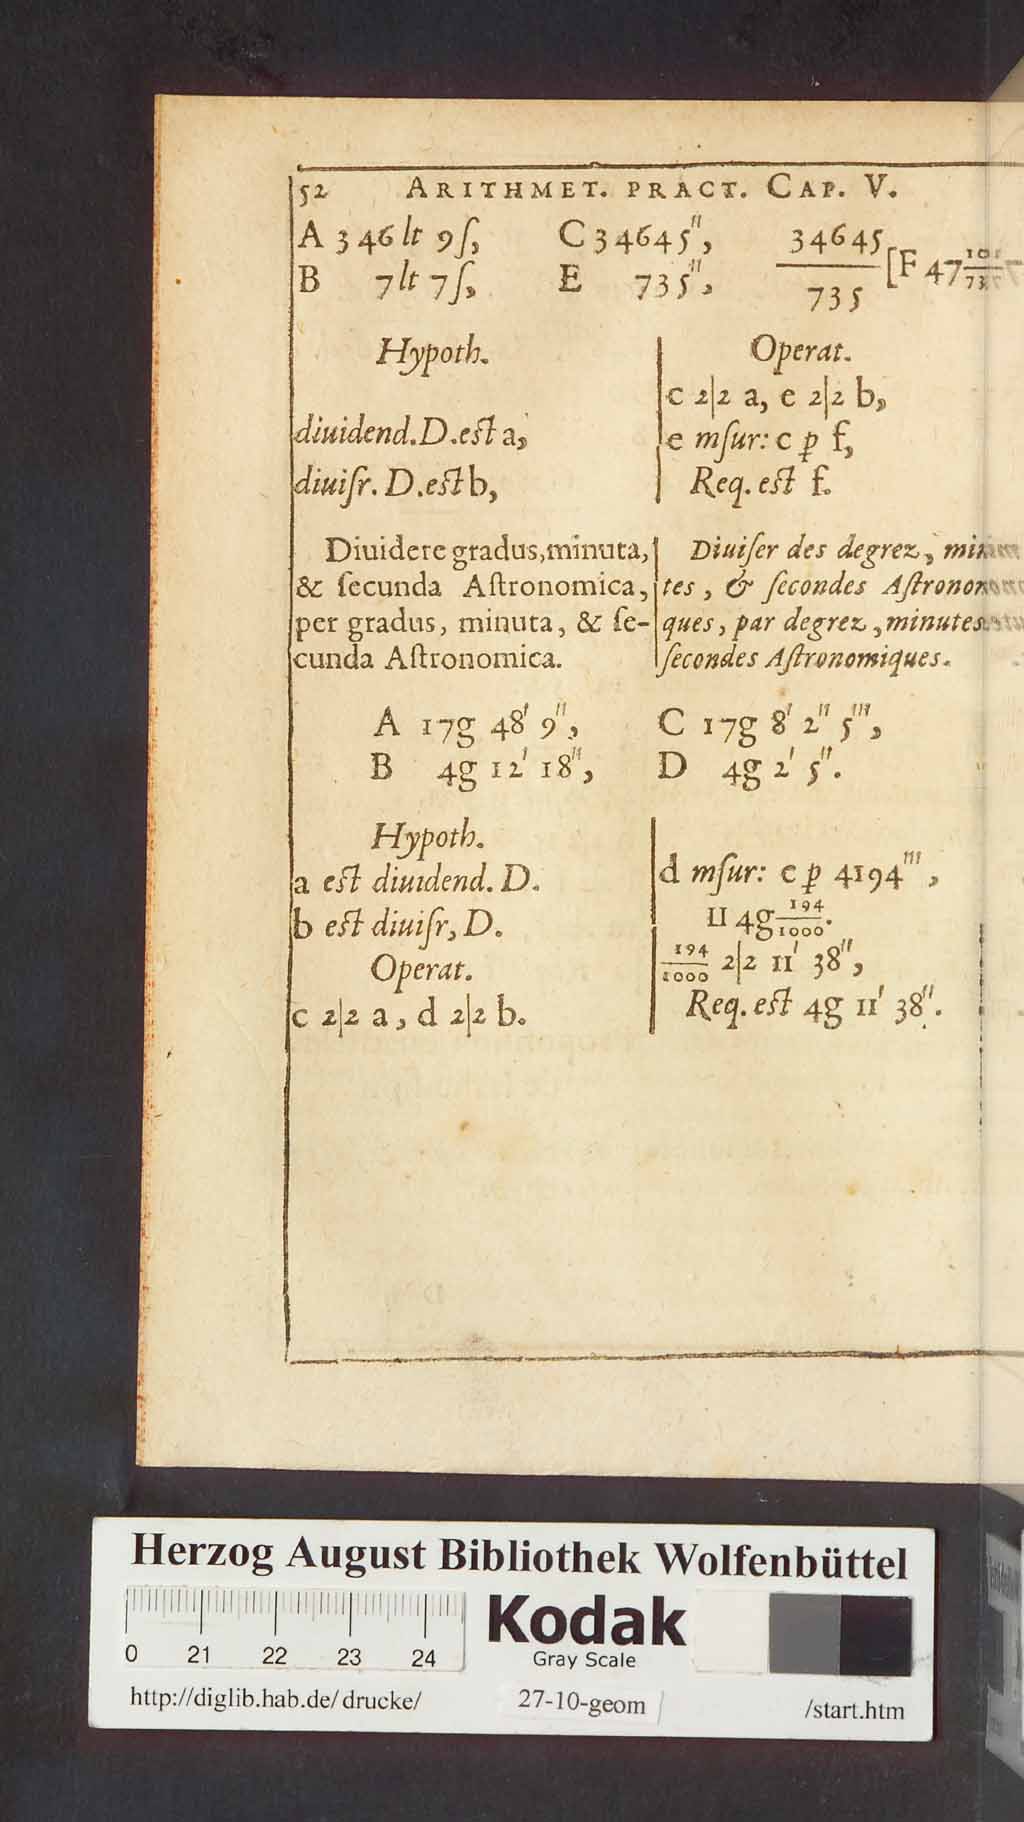 52 ARITHMET. PRACT. CAP. V.
A 346 lt 9ſ, C 34645'', 34645
B 7 lt 7ſ, E 735'', 735 [F 47
Hypoth. Operat.
c 2|2 a, e 2|2 b,
diuidend. D. est a, e mſur: c p f,
diuiſr. D. est b, Req. est f.
Diuidere gradus, minuta,
& ſecunda Aſtronomica,
per gradus, minuta, & ſe-
cunda Aſtronomica.
Diuiſer des degrez, min
tes, & ſecondes Aſtrono
ques, par degrez, minutes
ſecondes Aſtronomiques.
A 17g 48' 9'', C 17g 8' 2'' 5''',
B 4g 12' 18'', D 4g 2' 5''.
Hypoth.
a est diuidend. D.
b est diuiſr, D.
Operat.
c 2|2 a, d 2|2 b.
d mſur: c p 4194''',
II 4g 194/1000.
194/1000 2|2 11' 38'',
Req. est 4g 11' 38''.
Herzog August Bibliothek Wolfenbüttel
0 21 22 23 24
Kodak
Gray Scale
http://diglib.hab.de/drucke/ 27-10-geom /start.htm